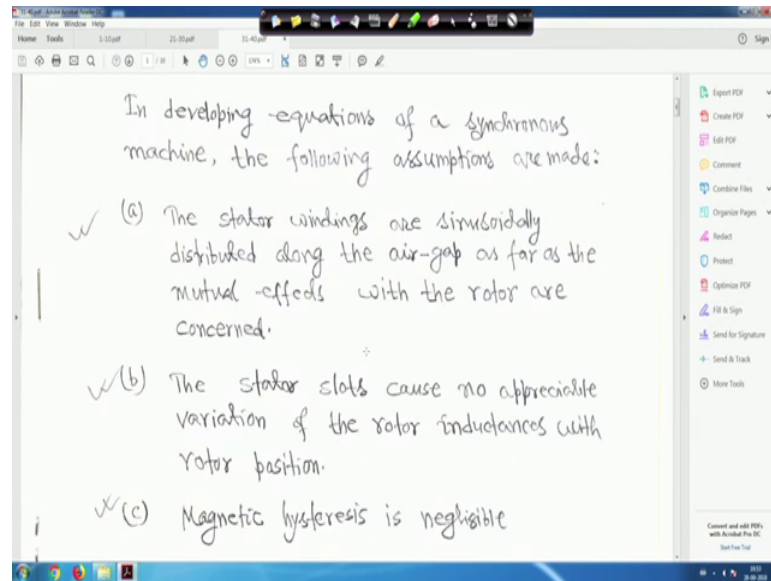 31-40.pdf - Adobe Acrobat Reader DC
File Edit View Window Help
Home Tools 1-10.pdf 21-30.pdf 31-40.pdf Sign
In developing equations of a synchronous
machine, the following assumptions are made:
(a) The stator windings are sinusoidally
distributed along the air-gap as far as the
mutual effects with the rotor are
concerned.
(b) The stator slots cause no appreciable
variation of the rotor inductances with
rotor position.
(c) Magnetic hysteresis is negligible
Export PDF
Create PDF
Edit PDF
Comment
Combine Files
Organize Pages
Redact
Protect
Optimize PDF
Fill & Sign
Send for Signature
Send & Track
More Tools
Convert and edit PDFs
with Acrobat Pro DC
Start Free Trial